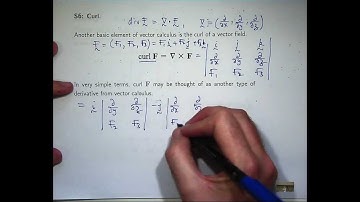 S6: Curl. div F = ∇ · F , ∇ = (∂/∂x , ∂/∂y , ∂/∂z)
Another basic element of vector calculus is the curl of a vector field.
F = (F₁, F₂, F₃) = F₁i + F₂j + F₃k
curl F = ∇ × F = | i j k |
| ∂/∂x ∂/∂y ∂/∂z |
| F₁ F₂ F₃ |
In very simple terms, curl F may be thought of as another type of
derivative from vector calculus.
= i | ∂/∂y ∂/∂z | − j | ∂/∂x
| F₂ F₃ | | F